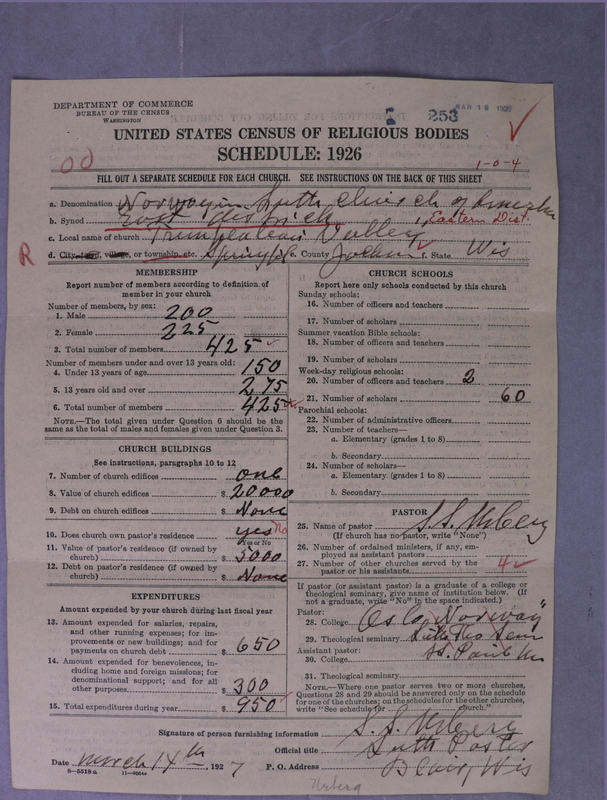 DEPARTMENT OF COMMERCE
BUREAU OF THE CENSUS
WASHINGTON
253
MAR 18 1927
UNITED STATES CENSUS OF RELIGIOUS BODIES
SCHEDULE: 1926
1-0-4
FILL OUT A SEPARATE SCHEDULE FOR EACH CHURCH. SEE INSTRUCTIONS ON THE BACK OF THIS SHEET
a. Denomination Norwegian Luth Church of America
b. Synod East district Eastern Dist.
c. Local name of church Trempealeau Valley
R
d. City, town, village, or township, etc. Springf e. County Jackson f. State Wis
MEMBERSHIP
Report number of members according to definition of member in your church
Number of members, by sex:
1. Male 200
2. Female 225
3. Total number of members 425
Number of members under and over 13 years old:
4. Under 13 years of age 150
5. 13 years old and over 275
6. Total number of members 425
NOTE.—The total given under Question 6 should be the same as the total of males and females given under Question 3.
CHURCH BUILDINGS
See instructions, paragraphs 10 to 12
7. Number of church edifices one
8. Value of church edifices $ 20000
9. Debt on church edifices $ None
10. Does church own pastor's residence yes No
Yes or No
11. Value of pastor's residence (if owned by church) $ 5000
12. Debt on pastor's residence (if owned by church) $ None
EXPENDITURES
Amount expended by your church during last fiscal year
13. Amount expended for salaries, repairs, and other running expenses; for improvements or new buildings; and for payments on church debt $ 650
14. Amount expended for benevolences, including home and foreign missions; for denominational support; and for all other purposes $ 300
15. Total expenditures during year $ 950
CHURCH SCHOOLS
Report here only schools conducted by this church
Sunday schools:
16. Number of officers and teachers
17. Number of scholars
Summer vacation Bible schools:
18. Number of officers and teachers
19. Number of scholars
Week-day religious schools:
20. Number of officers and teachers 2
21. Number of scholars 60
Parochial schools:
22. Number of administrative officers
23. Number of teachers—
a. Elementary (grades 1 to 8)
b. Secondary
24. Number of scholars—
a. Elementary (grades 1 to 8)
b. Secondary
PASTOR
25. Name of pastor S. S. Urberg
(If church has no pastor, write "None")
26. Number of ordained ministers, if any, employed as assistant pastors
27. Number of other churches served by the pastor or his assistants 4
If pastor (or assistant pastor) is a graduate of a college or theological seminary, give name of institution below. (If not a graduate, write "No" in the space indicated.)
Pastor:
28. College Norway
29. Theological seminary Luth Theo Sem
Assistant pastor: St. Paul
30. College
31. Theological seminary
NOTE.—Where one pastor serves two or more churches, Questions 28 and 29 should be answered only on the schedule for one of the churches; on the schedules for the other churches, write "See schedule for church."
Signature of person furnishing information S. S. Urberg
Official title Luth Pastor
Date March 14th, 1927 P. O. Address Blair, Wis
8—5518a
Urberg